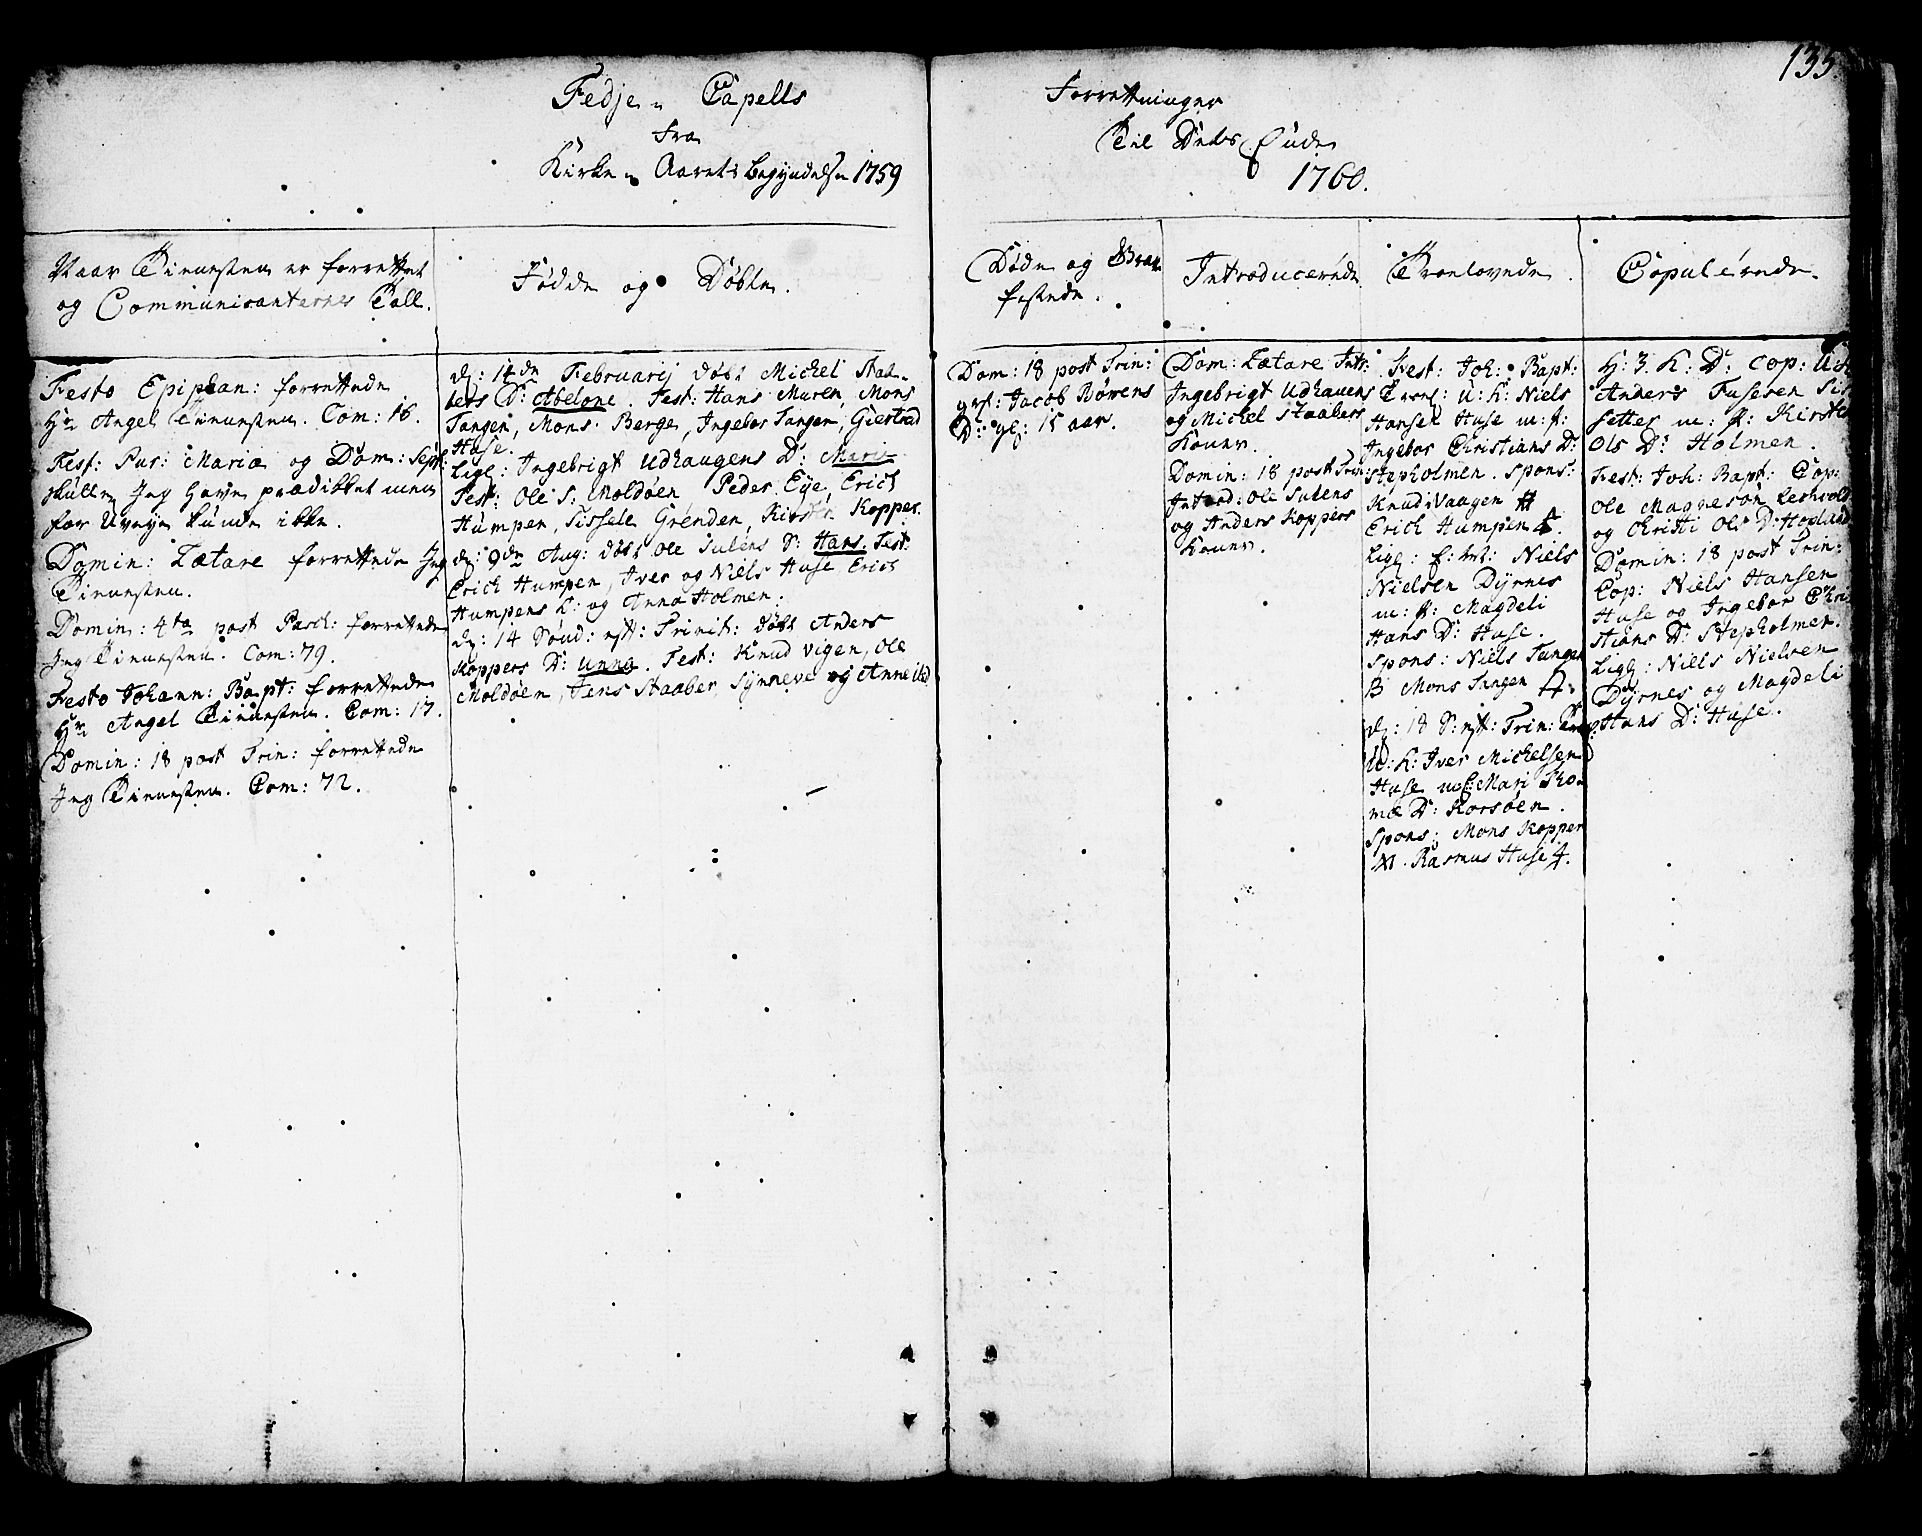 135.
Fedje Capells
Forretninger
fra
Til Dets Ende
Kirke Aarets begyndelse 1759
1760.
Naar Tienesten er forrettet
og Communicanternes Tall.
Fødde og Døbte.
Døde og Begravfestede.
Introducerede
Trolovede.
Copulerede.
Festo Epiphan: forrettede
Hr Angel Tienesten. Com: 16.
Fest: Pur: Mariæ og Dom: Sept:
skulle Jeg have prædikket men
for Uveyr kunde ikke.
Domin: Lætare forrettede Jeg
Tienesten.
Domin: 4ta post Pasch: forrettede
Jeg Tienesten. Com: 79.
Festo Johann: Bapt: forrettede
Hr Angel Tienesten. Com: 17.
Domin: 18 post Trin: forrettede
Jeg Tienesten. Com: 72.
d: 14de Februarij døbt Michel Staabers
D: Abelone. Test: Hans Muren, Mons
Tangen, Mons Berge, Ingebor Tangen, Giertrud
Huse.
Lige: Ingebrigt Udhaugens D: Mari
Test: Ole S: Moldøen Peder Eye, Erich
Humpen, Sissele Grénden, Kirsten Kopper.
d: 9de Aug: døbt Ole Sulens S: Hans. Test:
Erich Humpen, Iver og Niels Huse Erich
Humpens K: og Anna Holmen.
d: 14 Sønd: eft: Trinit: døbt Anders
Koppers D: Unna. Test: Knud Vigen, Ole
Moldøen, Jens Staaber, Synneve og Anne ibd
Dom: 18 post Trin:
grf: Jacob Børens
D: gl: 15 aar.
Dom: Lætare Intr:
Ingebrigt Udhaugens
og Michel Staabers
Koner.
Domin: 18 post Trin:
Introd: Ole Sulens
og Anders Koppers
Koner.
Fest: Joh: Bapt:
Trol: U: K: Niels
Hansen Huse m: P:
Ingebor Christians D:
Stepholmen. Spons:
Knud Vaagen
Erich Humpen
Lige: E: M: Niels
Nielsen Dyrnes
m: P: Magdeli
Hans D: Huse.
Spons: Niels Tangen
B Mons Tangen
d: 18 S: eft: Trin: Trol:
U: K: Iver Michelsen
Huse m P: Mari Thomæ
D: Korsøen.
Spons: Mons Kopper
M. Rasmus Huse
H: 3 K: D: Cop:
Anders Tufesen Sissetter
m: P: Kirsten
Ols D: Holmen.
Fest: Joh: Bapt: Cop:
Ole Magnesøn Lerhvold
og Christi Ols D: Hopland
Domin: 18 post Trin:
Cop: Niels Hansen
Huse og Ingebor Christians
D: Stepholmen.
Lige: Niels Nielsen
Dyrnes og Magdeli
Hans D: Huse.